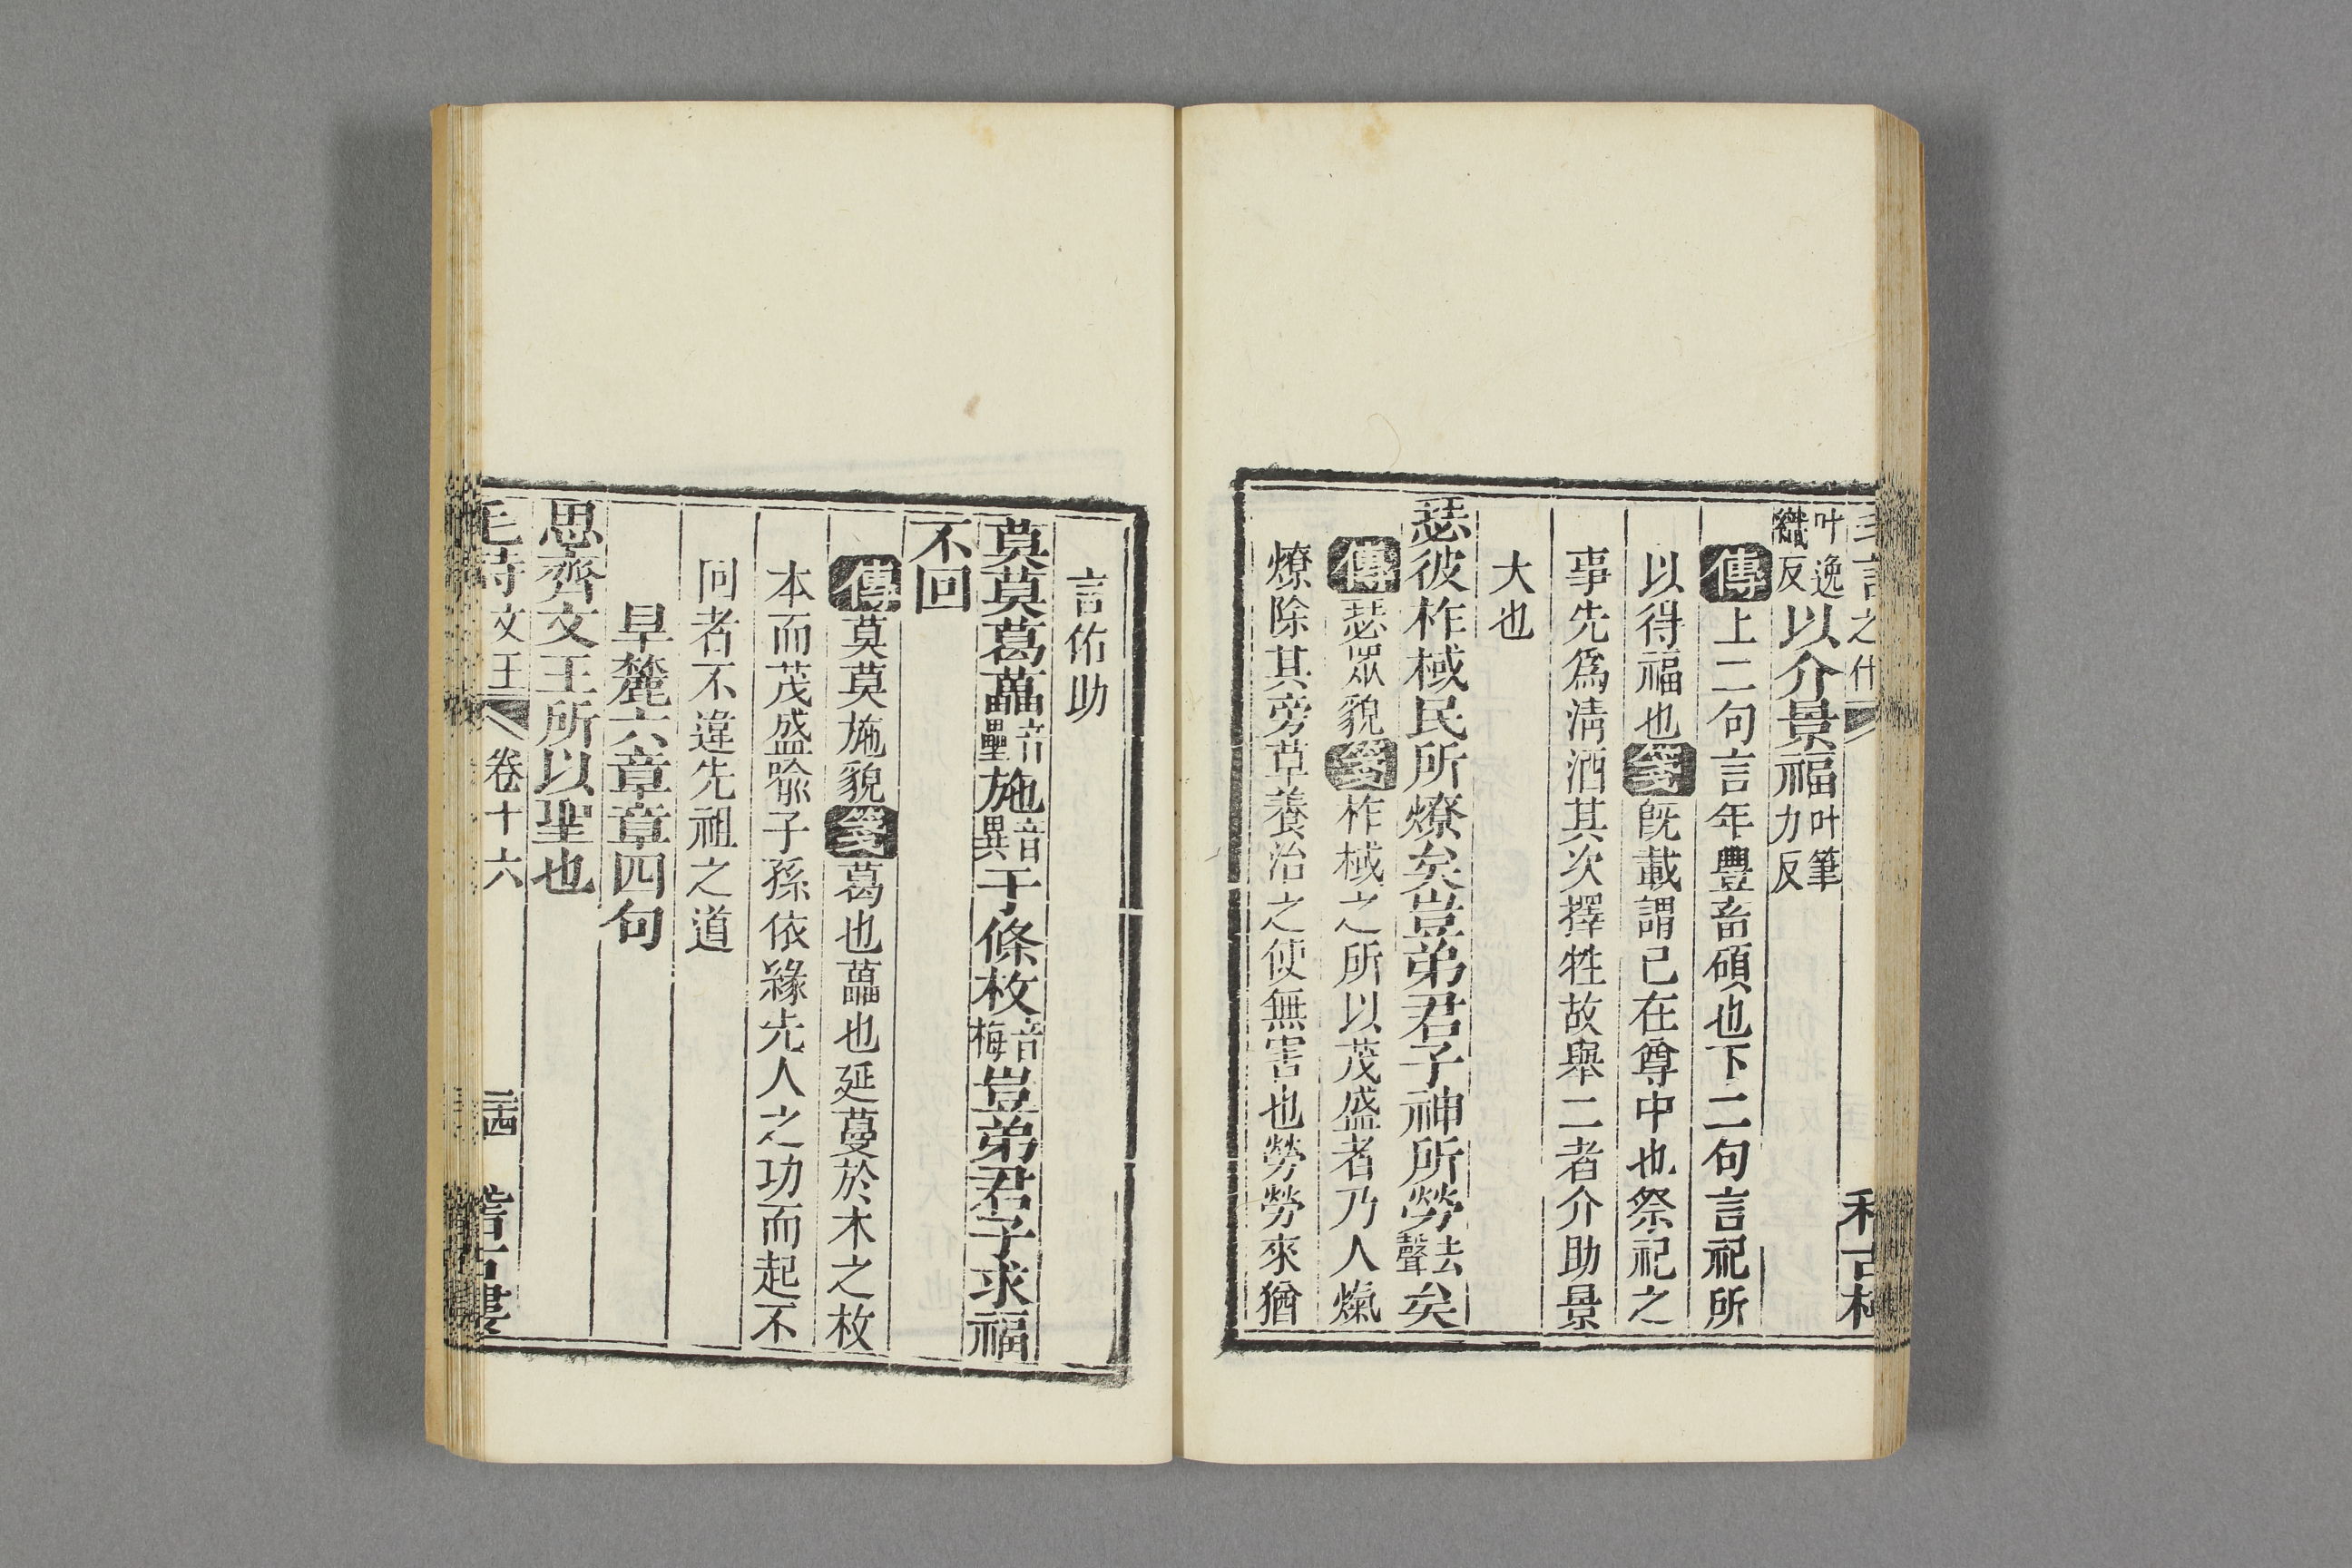 叶逸織反以介景福叶筆力反
傳上二句言年豐畜碩也下二句言祀所
以得福也箋旣載謂已在尊中也祭祀之
事先爲淸酒其次擇牲故舉二者介助景
大也
瑟彼柞棫民所燎矣豈弟君子神所勞去聲矣
傳瑟眾貌箋柞棫之所以茂盛者乃人熂
燎除其旁草養治之使無害也勞勞來猶
言佑助
莫莫葛藟音壘施音異于條枚音梅豈弟君子求福
不回
傳莫莫施貌箋葛也藟也延蔓於木之枚
本而茂盛喩子孫依緣先人之功而起不
回者不違先祖之道
旱麓六章章四句
思齊文王所以聖也
毛詩 文王 卷十六